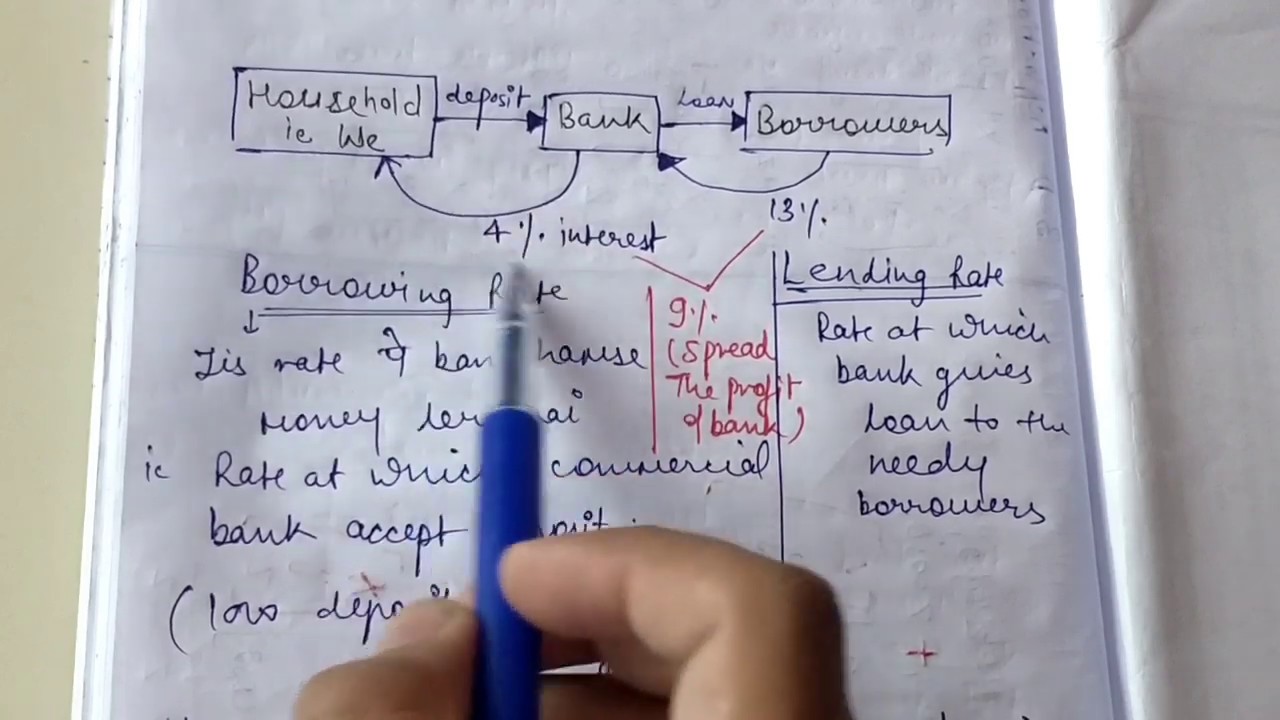 Household
ie We
deposit
Bank
Loan
Borrowers
4% interest
13%
Borrowing
Jis rate पे bank
Money
ie Rate at which commercial
bank accept
(low
9%
(Spread
The profit
of bank)
Lending Rate
Rate at which
bank gives
Loan to the
needy
borrowers